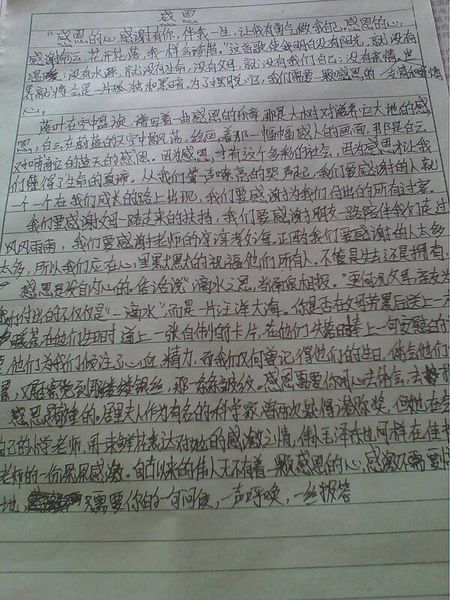 感恩
"感恩的心,感谢有你,伴我一生,让我有勇气做我自己,感恩的心,
感谢命运,花开花落,我一样会珍惜。"这首歌使我明白没有阳光,就没有
温暖;没有水源,就没有生命,没有父母,就没有我们自己;没有亲情,世
界就将会是一片孤独和黑暗。为了摆脱它,我们需要一颗感恩的
心。
落叶在空中盘旋,谱写着一曲感恩的乐章,那是大树对滋养它大地的感
恩;白云在蔚蓝的天空中飘荡,绘画着那一幅幅感人的画面,那是白云
对哺育它的蓝天的感恩。因为感恩才有这个多彩的社会,因为感恩才让我
们懂得了生命的真谛。从我们第一声啼哭的哭声起,我们要感谢的人就
一个一个在我们成长的路上出现,我们要感谢为我们付出的所有过客。
我们要感谢父母一路走来的扶持,我们要感谢朋友一路陪伴我们走过
风风雨雨,我们要感谢老师的谆谆教诲。正因为我们要感谢的人太多
太多,所以我们应在心里默默的祝福他们所有人,不管是失去还是拥有。
感恩是发自内心的。俗话说"滴水之恩,当涌泉相报。"更何况父母,亲友为
我们付出的不仅仅是"一滴水",而是一片汪洋大海。你是否在父母劳累后送上一
在他们生日时递上一张自制的卡片,在他们失落时捧上一句安慰的
他们为我们倾注了心血、精力,而我们又何曾记得他们的生日,体会他们
累,又是否察觉到那缕缕银丝,那一条条皱纹。感恩需要你用心去体会,去
感恩是敬重的。居里夫人作为有名的科学家,曾两次获得诺贝尔奖,但她在会
自己的小学老师,用一束鲜花表达对她的感激之情;伟人毛泽东也同样在佳节
老师的一份深深感激。自古以来的伟人无不有着一颗感恩的心,感激不需要惊
地,只需要你的一句问候,一声呼唤,一丝报答